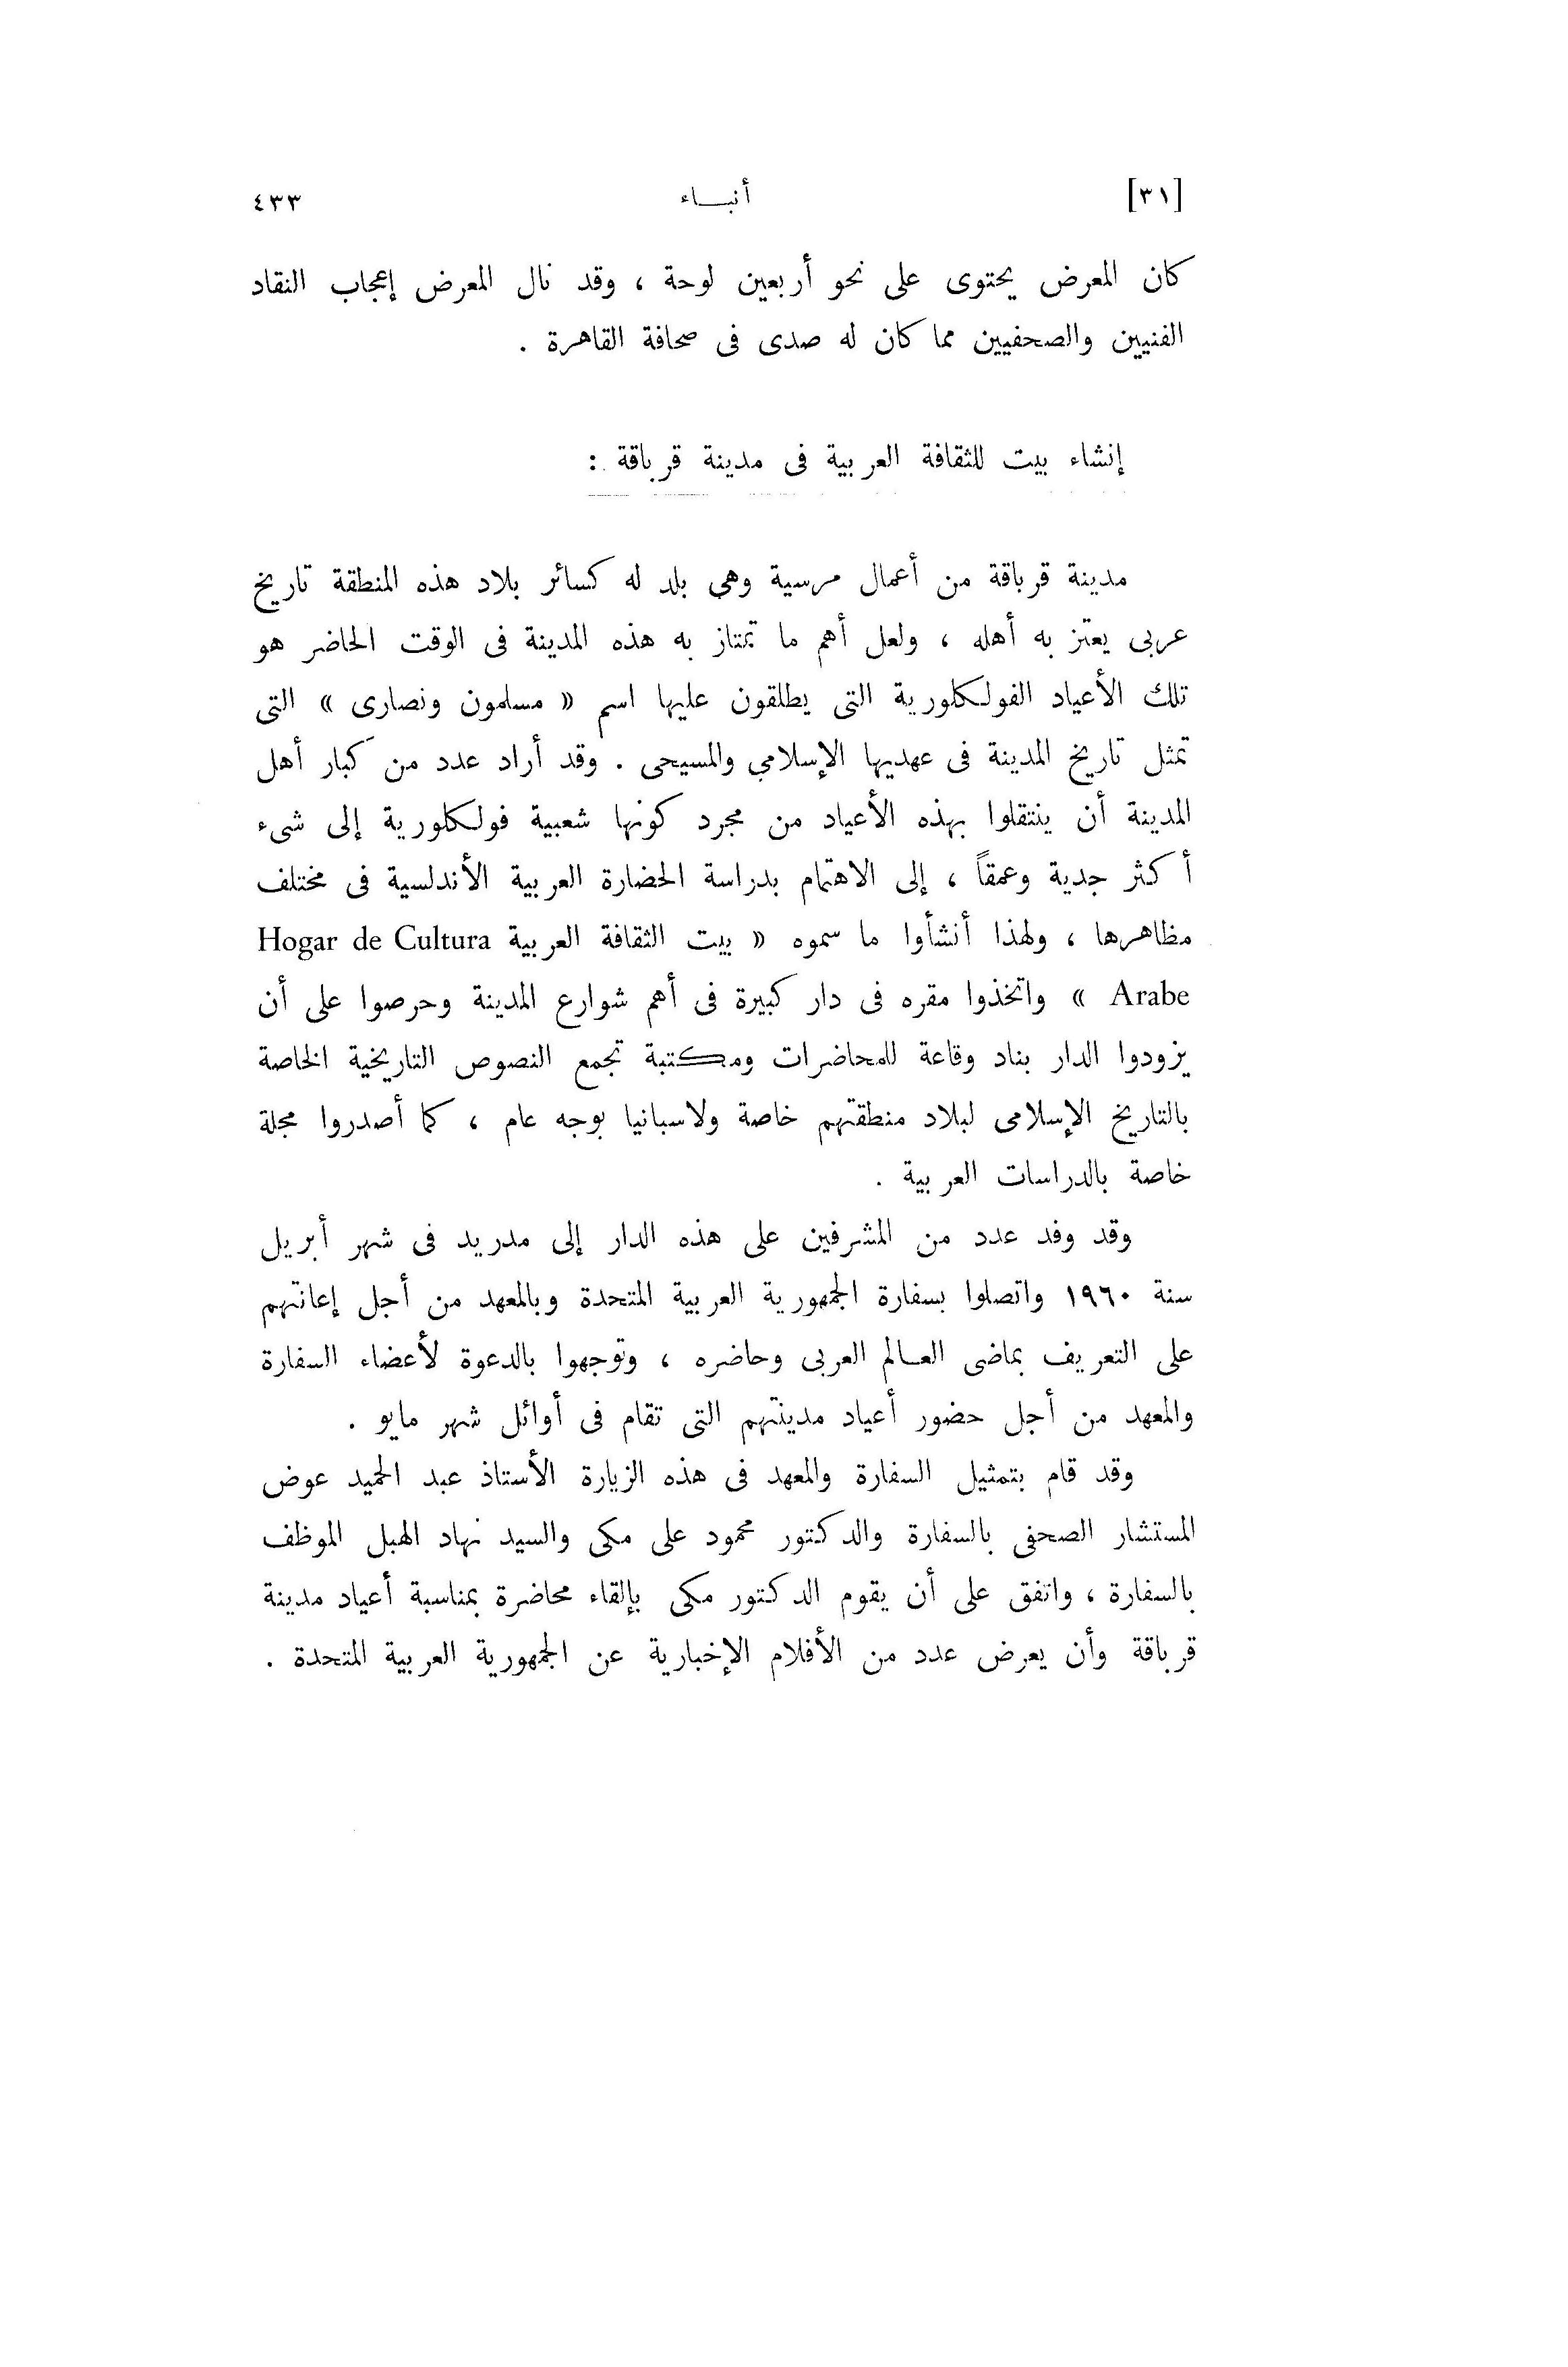 [٣١] أنبـــاء ٤٣٣
كان المعرض يحتوى على نحو أربعين لوحة ، وقد نال المعرض إعجاب النقاد
الفنيين والصحفيين مما كان له صدى فى صحافة القاهرة .
إنشاء بيت للثقافة العربية فى مدينة قرباقة :
مدينة قرباقة من أعمال مرسية وهى بلد له كسائر بلاد هذه المنطقة تاريخ
عربى يعتز به أهله ، ولعل أهم ما تمتاز به هذه المدينة فى الوقت الحاضر هو
تلك الأعياد الفولكلورية التى يطلقون عليها اسم « مسلمون ونصارى » التى
تمثل تاريخ المدينة فى عهديها الإسلامى والمسيحى . وقد أراد عدد من كبار أهل
المدينة أن ينتقلوا بهذه الأعياد من مجرد كونها شعبية فولكلورية إلى شىء
أكثر جدية وعمقاً ، إلى الاهتمام بدراسة الحضارة العربية الأندلسية فى مختلف
مظاهرها ، ولهذا أنشأوا ما سموه « بيت الثقافة العربية Hogar de Cultura
Arabe » واتخذوا مقره فى دار كبيرة فى أهم شوارع المدينة وحرصوا على أن
يزودوا الدار بناد وقاعة للمحاضرات ومكتبة تجمع النصوص التاريخية الخاصة
بالتاريخ الإسلامى لبلاد منطقتهم خاصة ولاسبانيا بوجه عام ، كما أصدروا مجلة
خاصة بالدراسات العربية .
وقد وفد عدد من المشرفين على هذه الدار إلى مدريد فى شهر أبريل
سنة ١٩٦٠ واتصلوا بسفارة الجمهورية العربية المتحدة وبالمعهد من أجل إعانتهم
على التعريف بماضى العـالم العربى وحاضره ، وتوجهوا بالدعوة لأعضاء السفارة
والمعهد من أجل حضور أعياد مدينتهم التى تقام فى أوائل شهر مايو .
وقد قام بتمثيل السفارة والمعهد فى هذه الزيارة الأستاذ عبد الحميد عوض
المستشار الصحفى بالسفارة والدكتور محمود على مكى والسيد نهاد الهبل الموظف
بالسفارة ، واتفق على أن يقوم الدكتور مكى بإلقاء محاضرة بمناسبة أعياد مدينة
قرباقة وأن يعرض عدد من الأفلام الإخبارية عن الجمهورية العربية المتحدة .